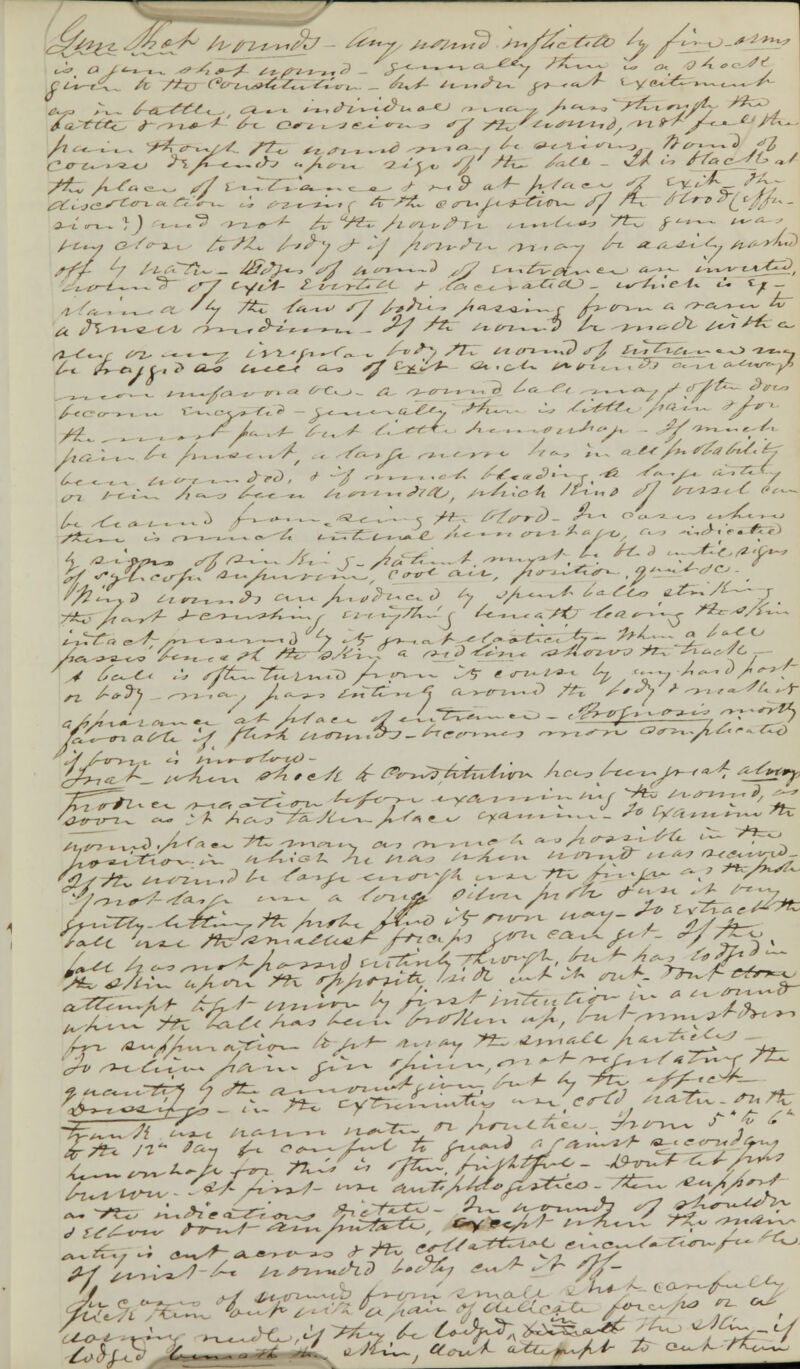 Gun Shot wounds - Any wound inflicted by fire-arms
is a gun shot wound - generally there is a shock
given to the Constitution - but under great excitement
as in battle, an individual may pass through the
battle & not be conscious of the wound, not feel the
pain though the wound may be serious. Wound of
course depends upon size of the ball - It is black at
the place of entrance & red at place of exit - The
discoloration is owing to the congestion of the blood (effu-
sion?) and not to the powder unless the gun was
very close to the body & if powder may be easily washed
off by water - Edges of wound of entrance are inverted,
wound of exit everted & lacerated - which is ex-
plained by the law of bodies passing from a rarer to
a denser medium - If the wound be made with a
slug or any irregular body the wound of entrance may
be ragged as well as of exit such wounds are always
more unfavorable - a round ball may & often does
become encysted - generally there is little pain & for
the most part but little hemorrhage - If much
pain be present, a large nerve has in all probability
been wounded, & if much bleeding a large artery
or vein has been wounded, which kind of vessel can
be learned from seeing the blood - In cases where
there is much internal hemorrhage, as indicated
by signs of sinking - patient must be bled until signs
of syncope supervene, cool air, position, quiet &c.
Wind wounds are produced by spent balls striking
the part & crushing everything beneath, leaving the skin
intact, preserved by its great elasticity - When a ball
passes beneath the skin a red line shows the track -
A ball is often turned from its course by any hard part
or body - may pass entirely around the body & make its
appearance at place of entrance - Prognosis mostly
favorable if flesh wounds - becomes more complicated
if bone is involved -
Treat - when shock to Constitution has been great, always
produce reaction before examining the wound, as
soon as it has taken place examine - To examine the
wound, place the man as much as possible in the
position in which he was when wound was received -
If the wound be large enough use the finger as the probe
if not large use a long silver probe & use it very
gently - letting the probe find its own way - To extract the
ball use the smallest forceps you can get - If the
ball has not passed entirely through, but has lodged in
the skin upon the opposite side cut it out - Dont
attempt to get union by first intention in a wound
when the ball has been broken up, but must dress
for suppuration to get away the small particles -
To relieve pain give opium, not regulating the
quantity by the amount given, but by the effect -
Dressings - in the extremities use cold water - on the
trunk use warm water or poultice. From 5th to 6th
to the 12th day be careful to guard against secondary
hemorrhage for this is often frightful - Dont let pus
burrow - At first use antiphlogistics - then support
as the indications dictate - In wounds of shoulder
& elbow dont amputate, except when the main
artery is cut across & the collateral circulation feeble
If wrist be wounded badly cut it off -
In cases of wound from small shot carefully
pick them out with a pair of delicate forceps or a
darning needle, if they be lodged in the skin - if
lodged beneath the skin, dont attempt to cut them